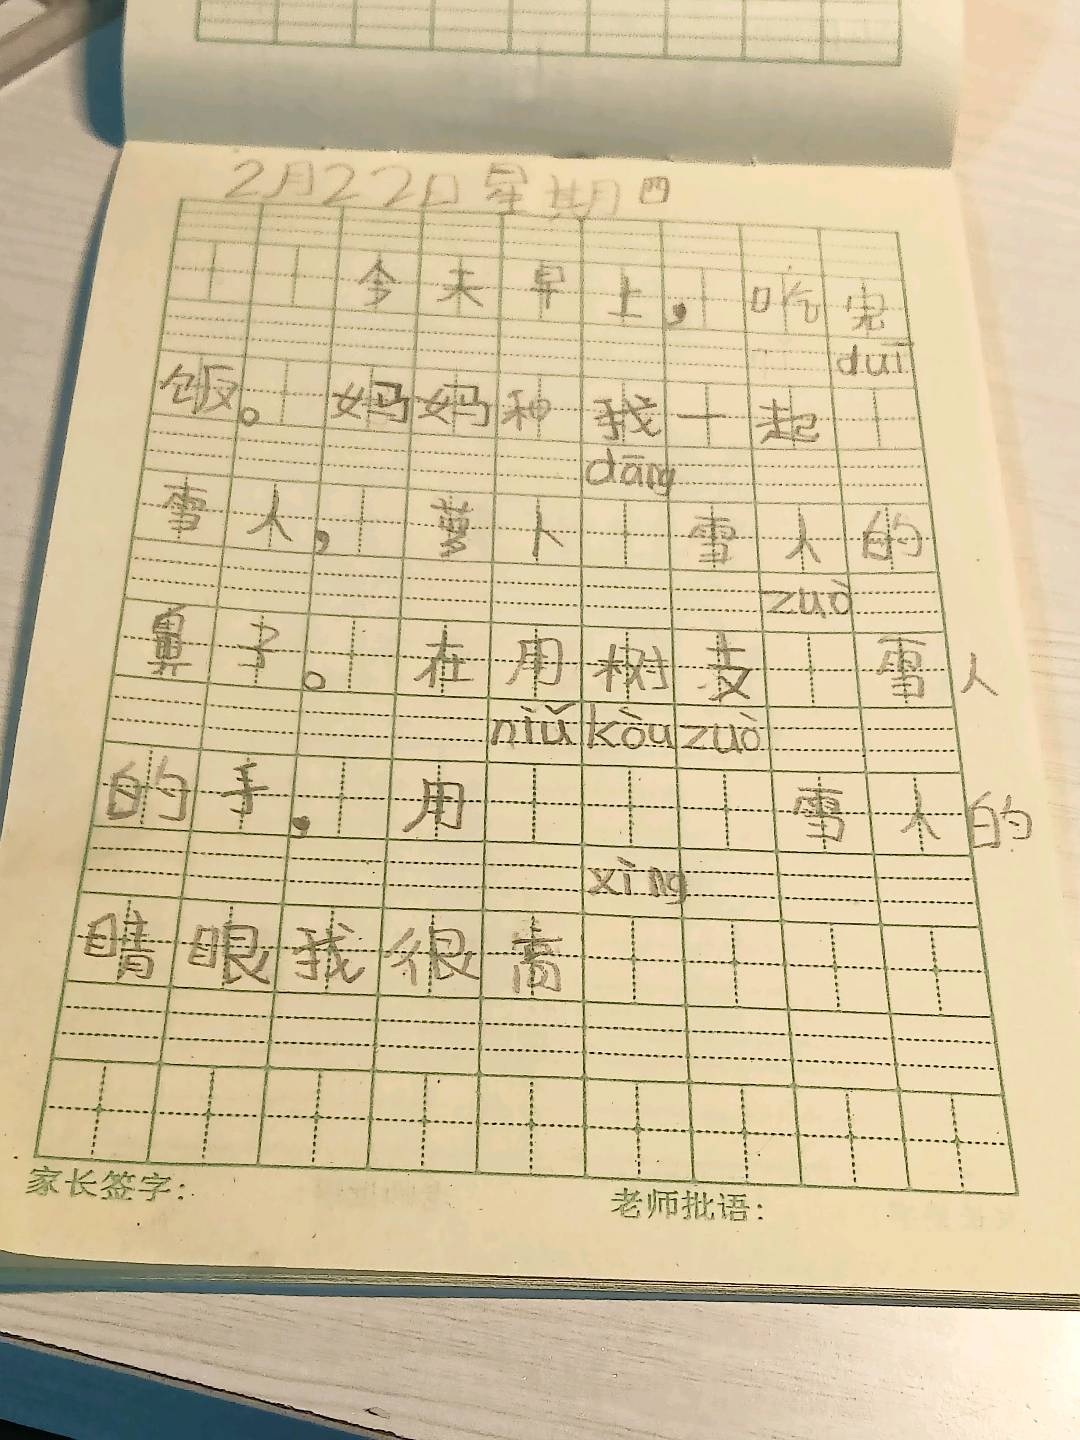 2月22日星期四
今天早上，吃完
duī
饭。妈妈和我一起
dāng
雪人，萝卜雪人的
zuò
鼻子。在用树支雪人
niǔ kòu zuò
的手，用雪人的
xìng
睛眼我很高
家长签字： 老师批语：